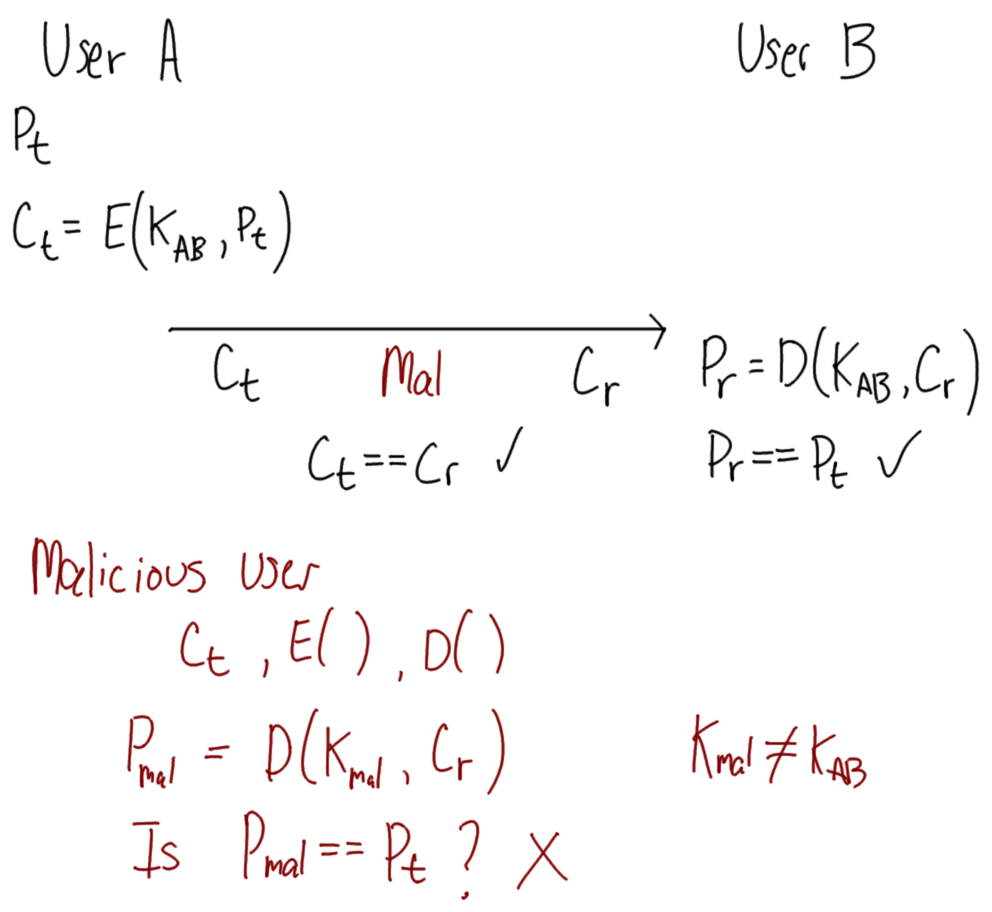 User A
User B
Pt
Ct = E(KAB, Pt)
Ct Mal Cr
Pr = D(KAB, Cr)
Ct == Cr ✓
Pr == Pt ✓
Malicious user
Ct, E( ), D( )
Pmal = D(Kmal, Cr)
Kmal ≠ KAB
Is Pmal == Pt ? X